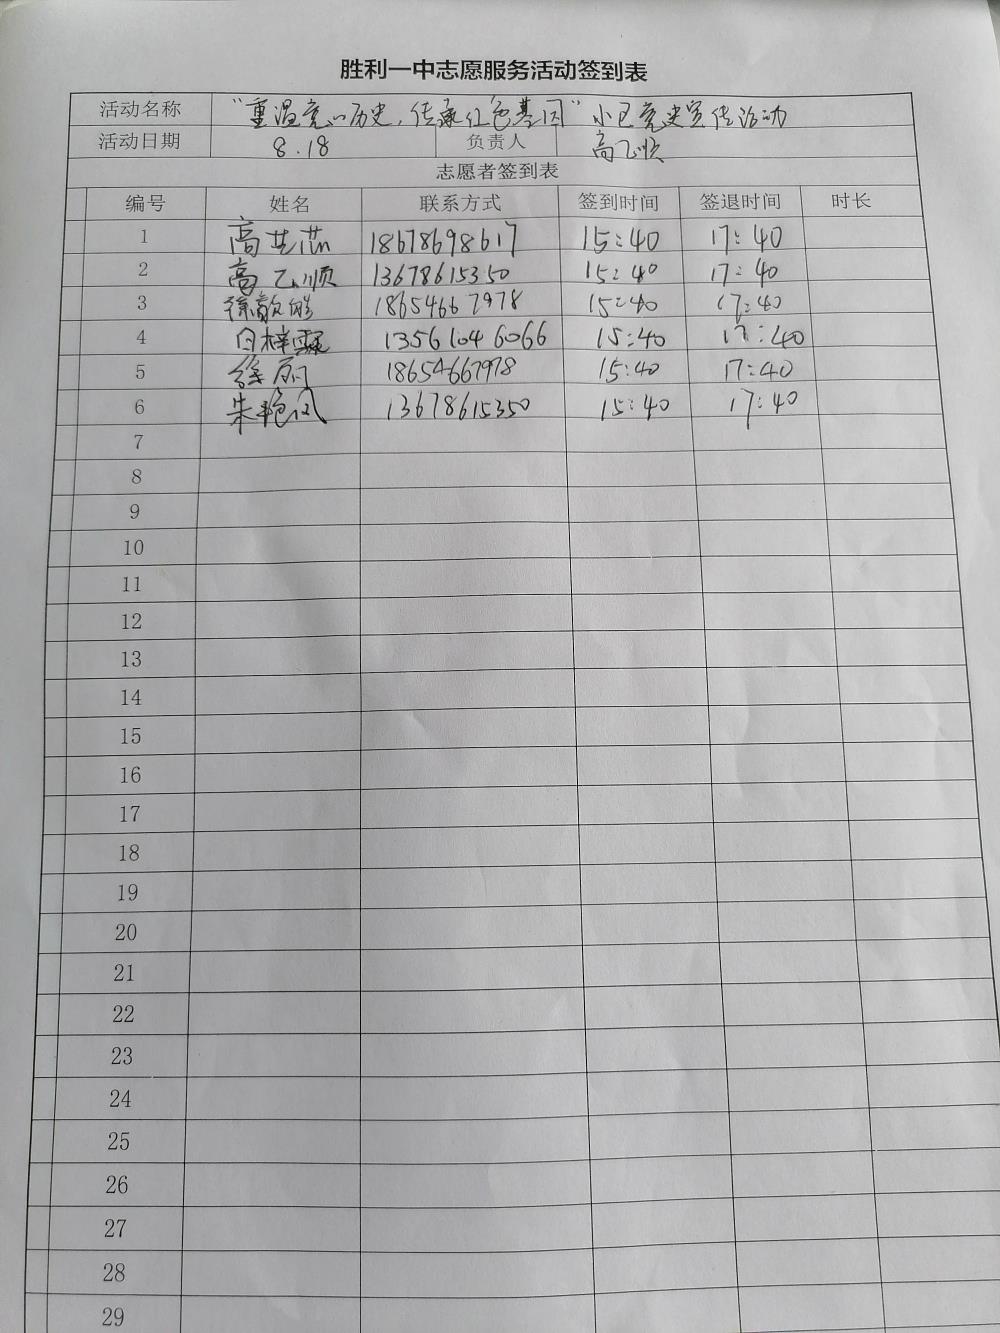 胜利一中志愿服务活动签到表
活动名称 "重温党的历史，传承红色基因" 小区党史宣传活动
活动日期 8.18 负责人 高飞顺
志愿者签到表
编号 姓名 联系方式 签到时间 签退时间 时长
1 高艺芯 18678698617 15:40 17:40
2 高飞顺 13678615350 15:40 17:40
3 徐歆皓 18654667978 15:40 17:40
4 13561046066 15:40 17:40
5 徐丽 18654667978 15:40 17:40
6 朱艳风 13678615350 15:40 17:40
7
8
9
10
11
12
13
14
15
16
17
18
19
20
21
22
23
24
25
26
27
28
29